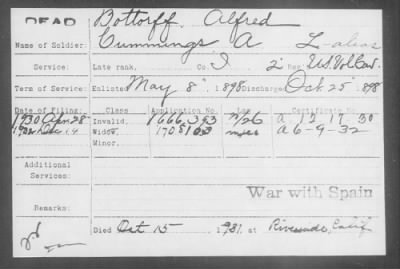 DEAD Bottorff. Alfred
Name of Soldier: Cummings A L-alias
Service: Late rank, Co. I 2" Reg. U.S.Vol.Cav.
Term of Service: Enlisted May 8" 1898 Discharged Oct. 25" 1898
Date of Filing: Class Application No. Law Certificate No.
1930 Apr-28 Invalid, 1666393 a 12 17 30
Widow, a 6-9-32
Minor,
Additional
Services:
War with Spain
Remarks:
Died Oct 15 1931. at Riverside, Calif